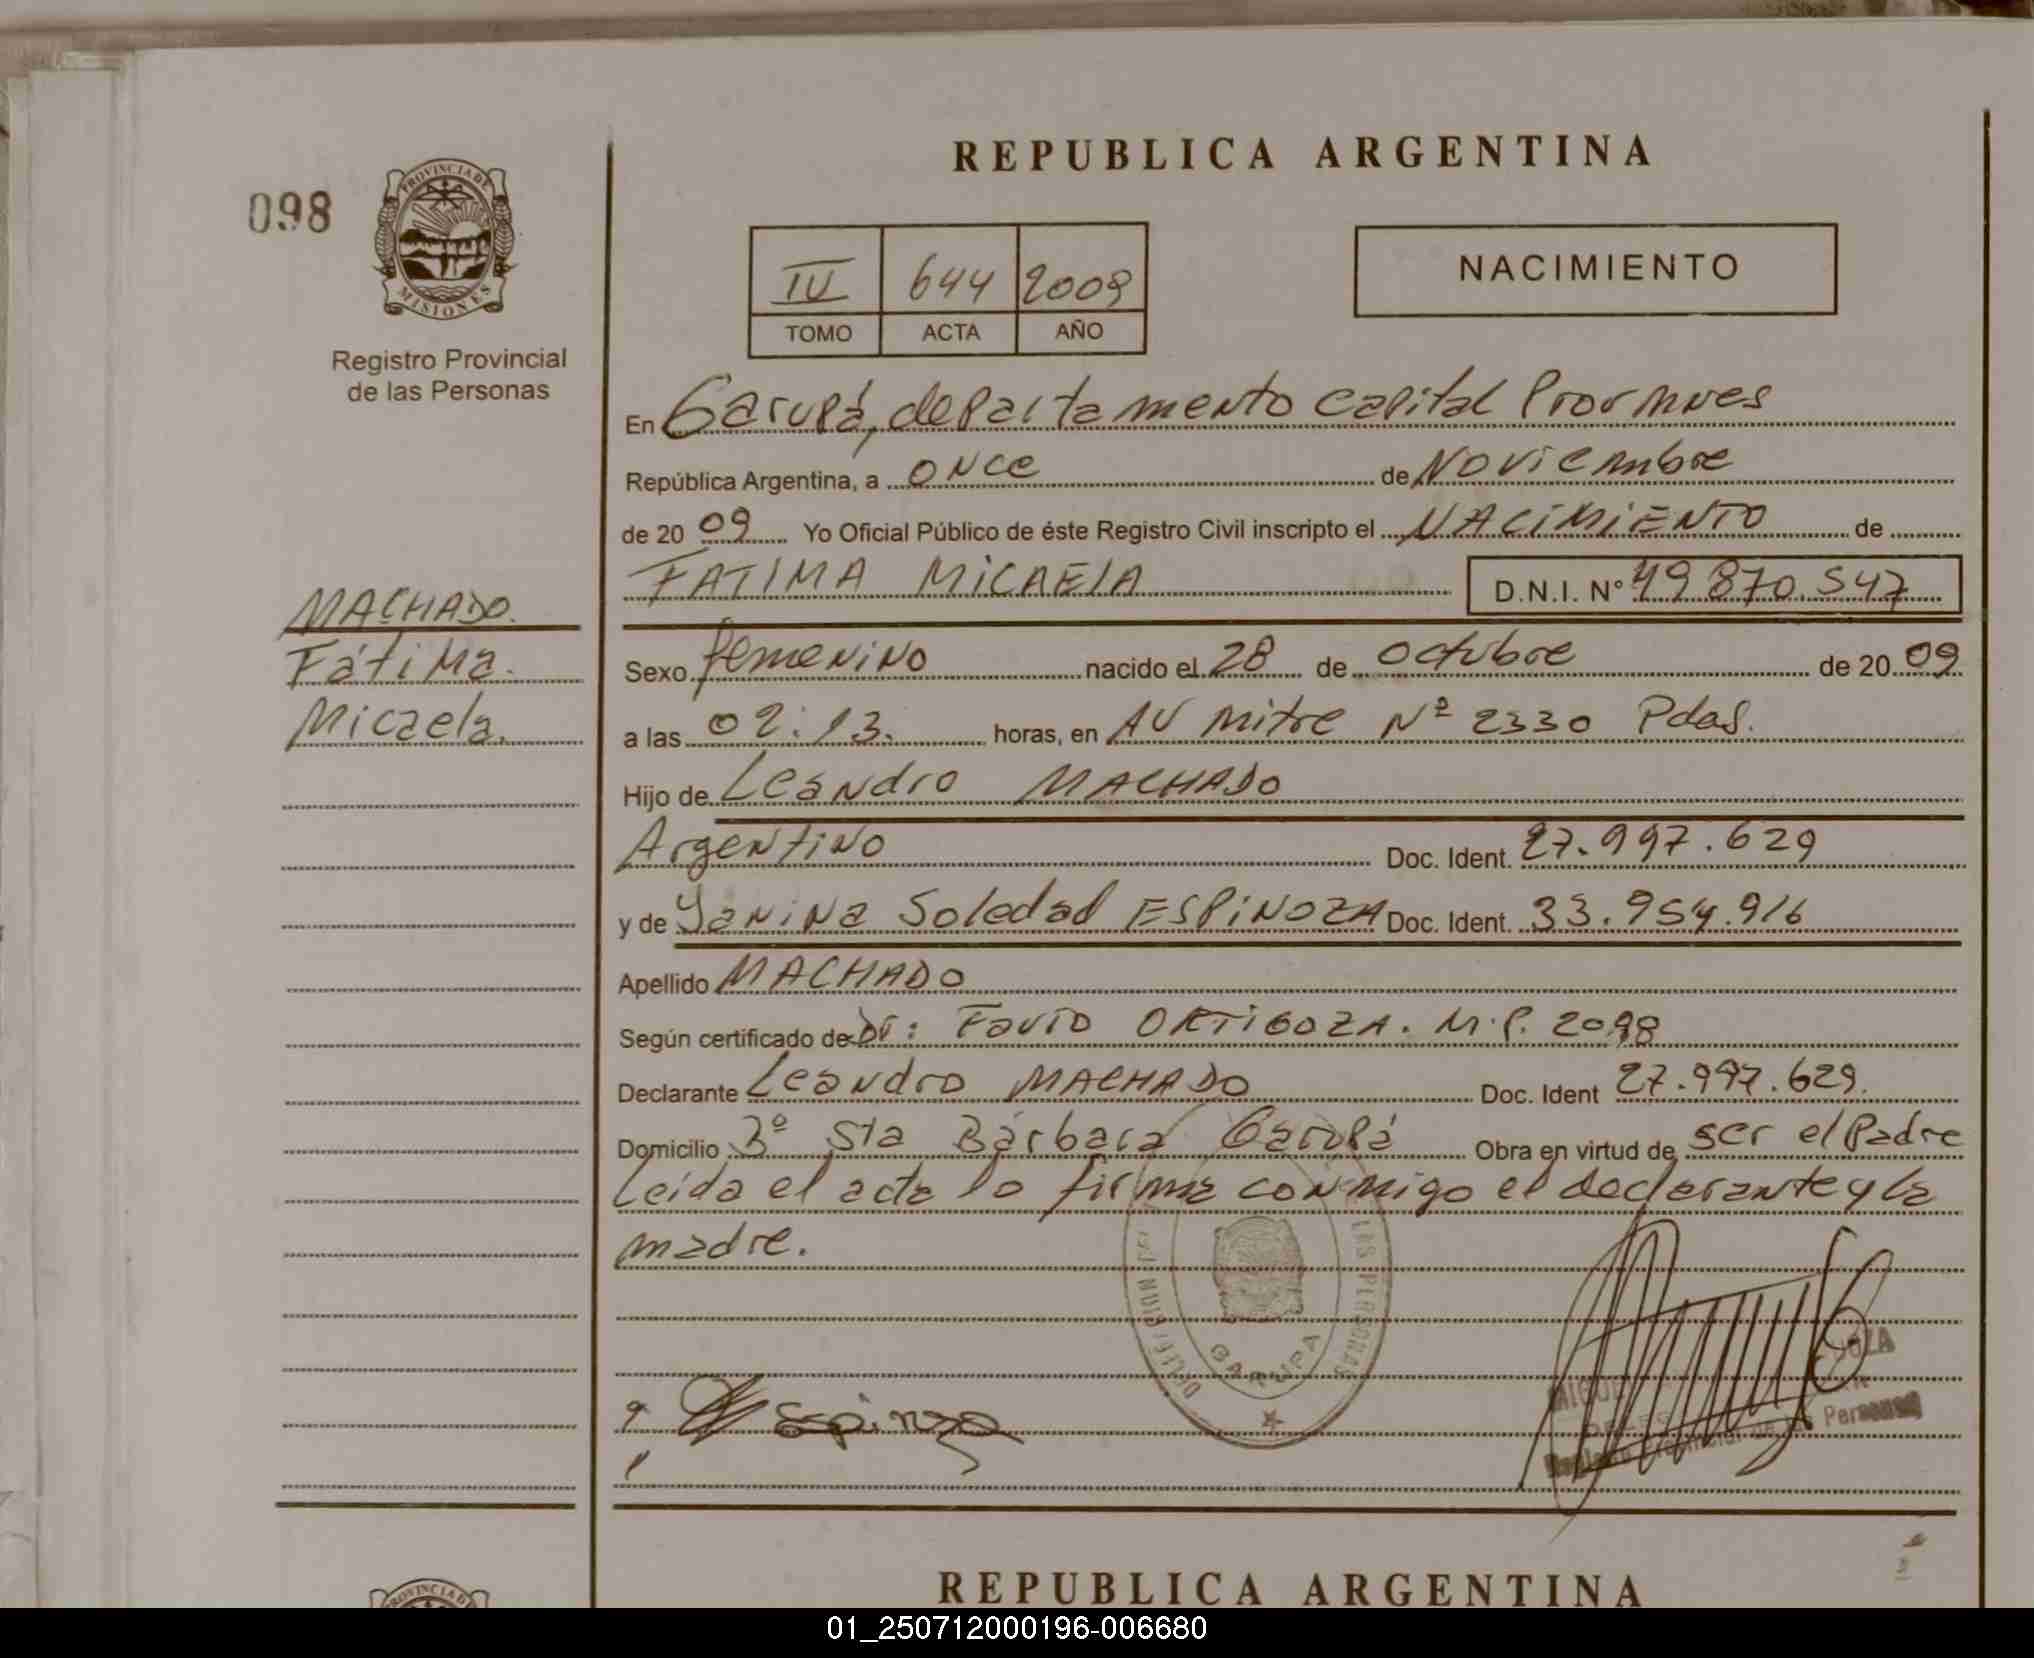 098
PROVINCIA DE
MISIONES
Registro Provincial
de las Personas
MACHADO.
Fátima.
Micaela.
REPUBLICA ARGENTINA
IV 644 2009
TOMO ACTA AÑO
NACIMIENTO
En Garupá, departamento capital
República Argentina, a once de Noviembre
de 20 09 Yo Oficial Público de éste Registro Civil inscripto el NACIMIENTO de
FATIMA MICAELA D.N.I. Nº 49.870.547
Sexo femenino nacido el 28 de octubre de 20 09
a las 02:13. horas, en AV mitre Nº 2330 Pdas.
Hijo de Leandro MACHADO
Argentino Doc. Ident. 27.997.629
y de Yanina Soledad ESPINOZA Doc. Ident. 33.954.916
Apellido MACHADO
Según certificado de Dr: Favio ORTIGOZA. M.P. 2098
Declarante Leandro MACHADO Doc. Ident 27.997.629.
Domicilio Bº Sta Bárbara Garupá Obra en virtud de ser el Padre
Leída el acta lo firma conmigo el declarante y la
madre.
LAS PERSONAS
GARUPA
Espinoza
de las Personas
REPUBLICA ARGENTINA
PROVINCIA DE
01_250712000196-006680